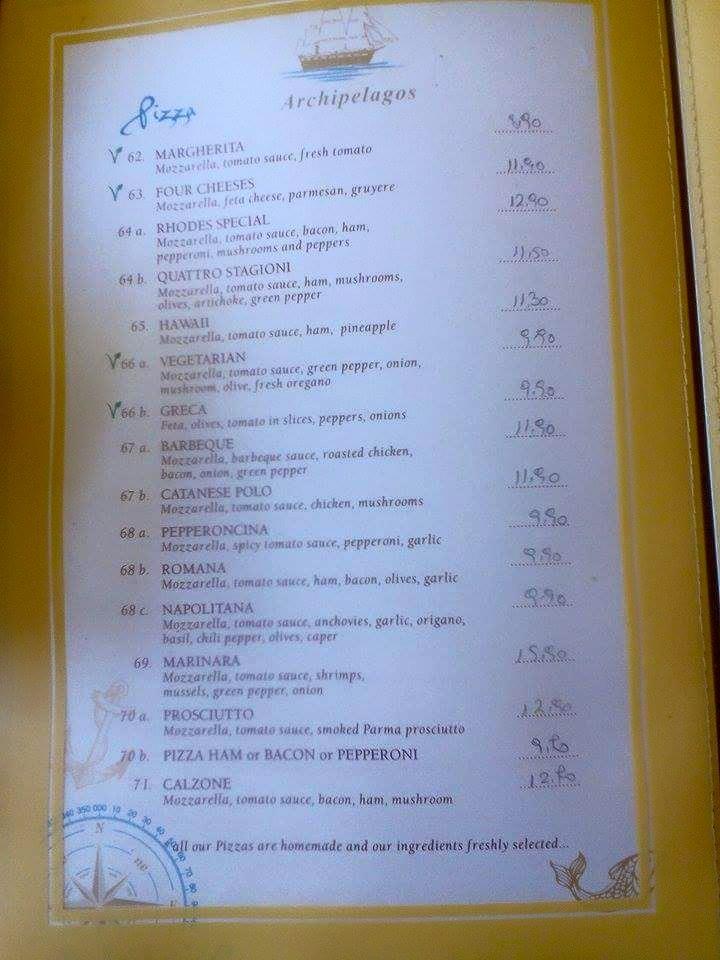 Archipelagos
Pizza
62. MARGHERITA 8,90
Mozzarella, tomato sauce, fresh tomato
63. FOUR CHEESES 11,90
Mozzarella, feta cheese, parmesan, gruyere
64 a. RHODES SPECIAL 12,90
Mozzarella, tomato sauce, bacon, ham,
pepperoni, mushrooms and peppers
64 b. QUATTRO STAGIONI 11,50
Mozzarella, tomato sauce, ham, mushrooms,
olives, artichoke, green pepper
65. HAWAII 11,30
Mozzarella, tomato sauce, ham, pineapple
66 a. VEGETARIAN 9,90
Mozzarella, tomato sauce, green pepper, onion,
mushroom, olive, fresh oregano
66 b. GRECA 9,90
Feta, olives, tomato in slices, peppers, onions
67 a. BARBEQUE 11,90
Mozzarella, barbeque sauce, roasted chicken,
bacon, onion, green pepper
67 b. CATANESE POLO 11,90
Mozzarella, tomato sauce, chicken, mushrooms
68 a. PEPPERONCINA 9,90
Mozzarella, spicy tomato sauce, pepperoni, garlic
68 b. ROMANA 9,90
Mozzarella, tomato sauce, ham, bacon, olives, garlic
68 c. NAPOLITANA 9,90
Mozzarella, tomato sauce, anchovies, garlic, origano,
basil, chili pepper, olives, caper
69. MARINARA
Mozzarella, tomato sauce, shrimps,
mussels, green pepper, onion
70 a. PROSCIUTTO 12,90
Mozzarella, tomato sauce, smoked Parma prosciutto
70 b. PIZZA HAM or BACON or PEPPERONI
71. CALZONE
Mozzarella, tomato sauce, bacon, ham, mushroom
all our Pizzas are homemade and our ingredients freshly selected...
340 350 000 10 20 30 40 50 60 70 80
N
ne
E